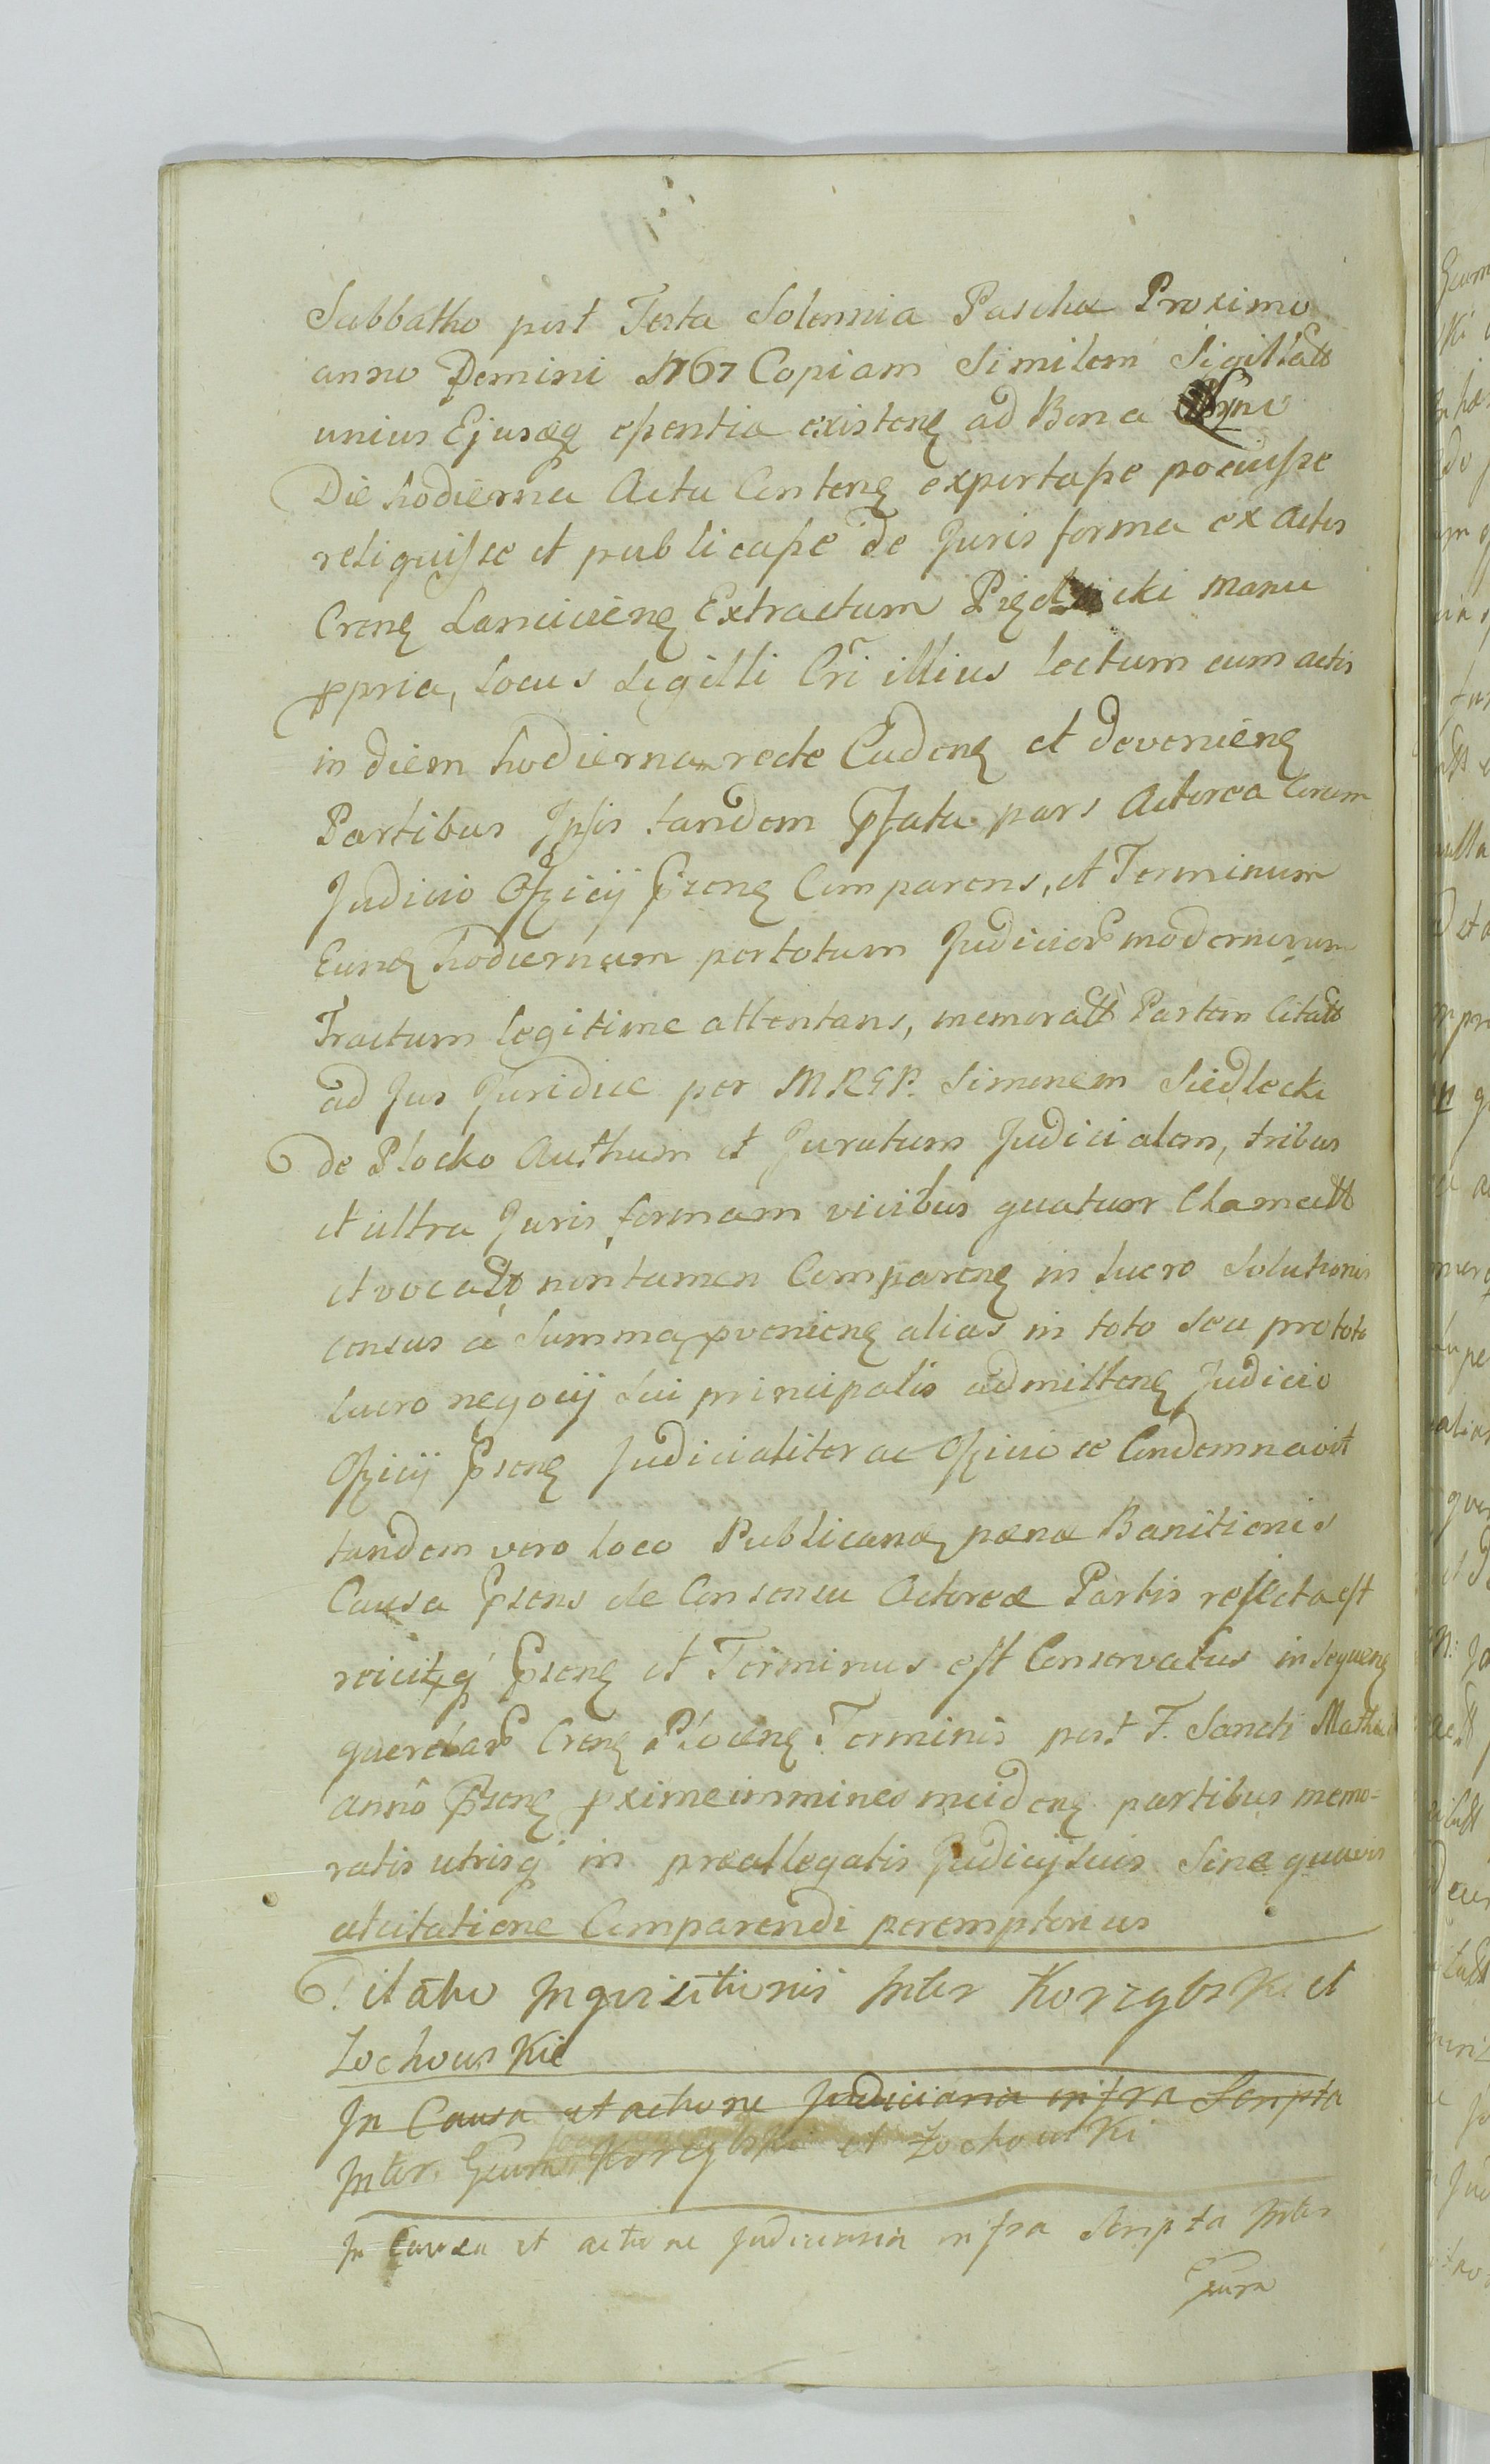 Sabbatho post Festa Solennia Paschæ Proximo
anno Domini 1767 Copiam Similem Sigillatt
unius Ejusdq essentiæ existenę ad Bona
Die hodierna Actu Contenę exportasse posuisse
reliquisse et publicasse de Juris forma ex Actis
Crenę Lanciciēnę Extractum manu
ppria, Locus Sigilli Cri illius lectum cum actis
in diem hodiernam recte Cadenę et devenienę
Partibus Ipsis tandem Pfata pars Actorea Coram
Judicio Officij Psenę Comparens, et Terminum
Eunđ hodiernum per totum Judicior modernorum
Tractum legitime attentans, memoratt Partem Citatt
ad Jus Juridice per MRGP. Simonem Siedlecki
de Plocko Authum et Juratum Judicialem, tribus
et ultra Juris formam vicibus quatuor Clamatt
et vocatt non tamen Comparenę in lucro Solutionis
census a Summa pvenienę alias in toto seu pro toto
lucro negocij sui principalis admittenę Judicio
Officij Psenę Judicialiter ac Officiose Condemnavit
tandem vero loco Publicanę pænæ Banitionis
Causa Psens de Consensu Actoreæ Partis rejecta est
reiicitq Psenę et Terminus est Conservatus in sequenę
querelar Crenę Plocenę Terminis post F. Sancti Mathæi
anno Psenę pxime imminen incidenę partibus memo-
ratis utrisq in præallegatis Judicijs suis Sine quavis
adcitatione Comparendi peremptorius
Dilatio Inquisitionis Inter Korzybskie et
Zochowskie
In Causa et actione Judiciaria infra Scripta
Inter Genum Korzybski et Zochowski
In Causa et actione Judiciaria infra Scripta Inter
Genum